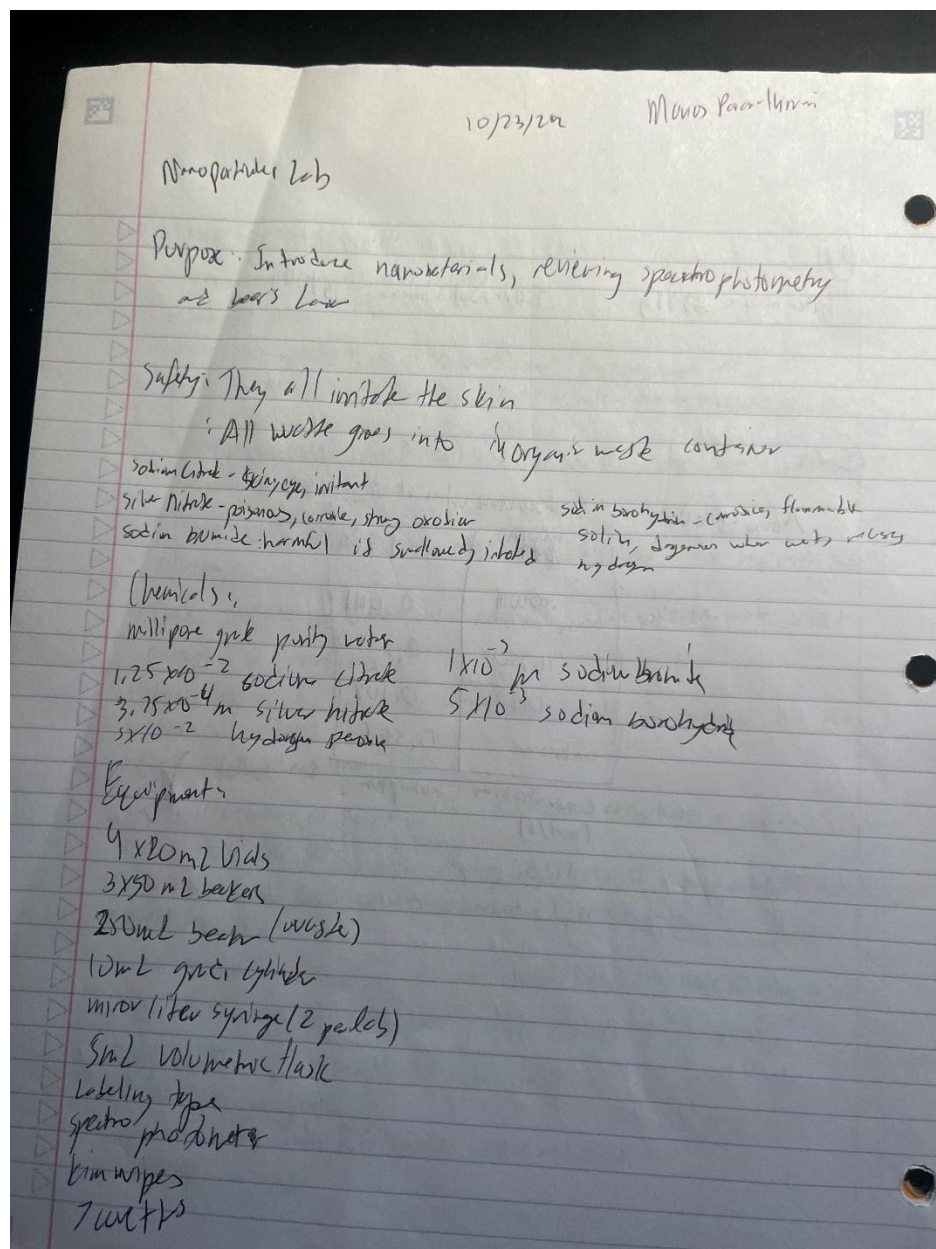 10/23/24
Nanoparticles Lab
Purpose: Introduce nanomaterials, reviewing specktrophotometry
and beer's Law
Safety: They all irritate the skin
: All waste goes into inorganic waste container
sodium Citrate - skin, eye, irritant
silver Nitrate - poisonous, corrosive, strong oxodizer
sodium bromide: harmful if swallowed, inhaled
sodium borohydride - corrosive, flammable
solids, dangerous when wet, releases
hydrogen
Chemicals:
millipore grade purity water
1.25x10⁻² sodium citrate
3.75x10⁻⁴ m silver nitrate
5x10⁻² hydrogen peroxide
1x10⁻³ m sodium bromide
5x10⁻³ sodium borohydride
Equipment:
4 x20mL Vials
3x50 mL beakers
250mL beaker (waste)
10mL grad. cylinder
micro liter syringe (2 per lab)
5mL volumetric flask
Labeling tape
spectro photometer
kimwipes
7 cuvettes